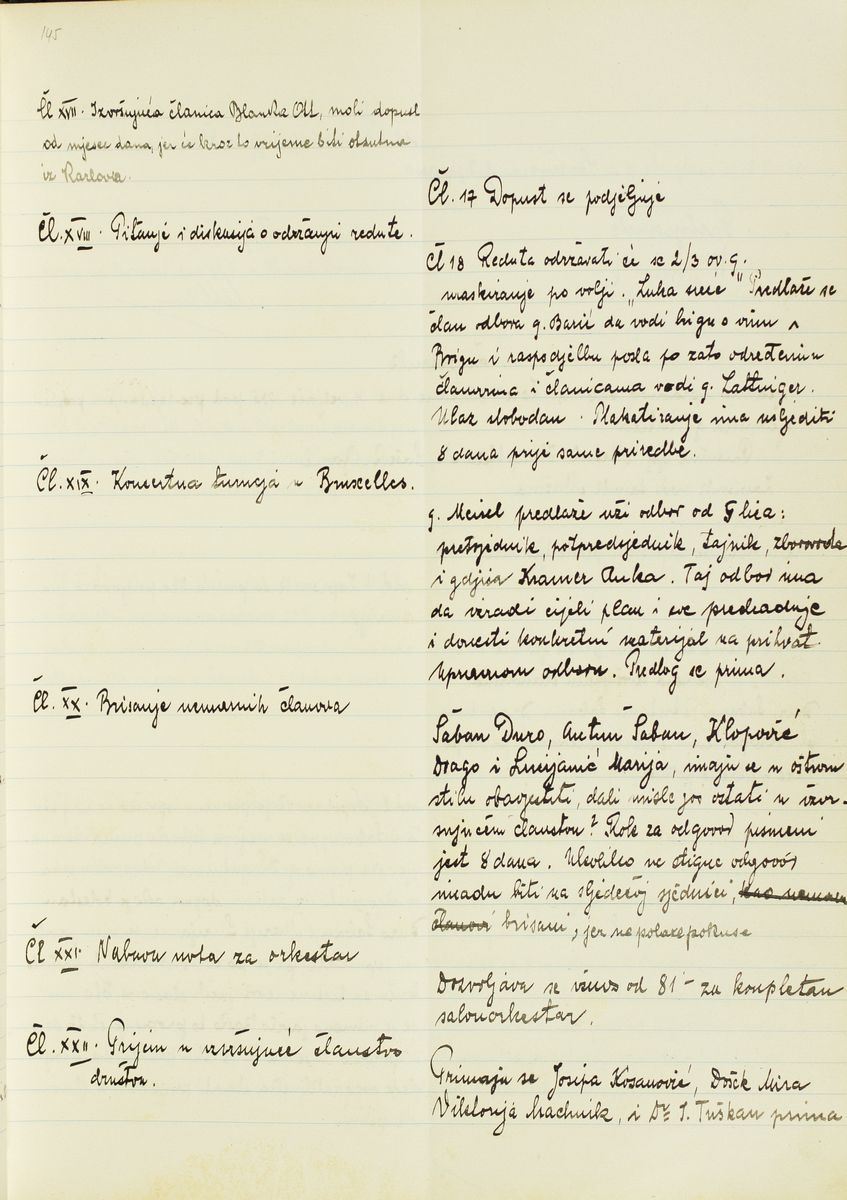 145
Čl XVII. Izvršujuća članica Blanka Ott, moli dopust
od mjesec dana, jer će kroz to vrijeme biti otsutna
iz Karlovca.
Čl. 17 Dopust se podjeljuje
Čl. XVIII. Pitanje i diskusija o održanju redute.
Čl 18 Reduta održavati će se 2/3 ov. g.
maskiranje po volji. „Luka sreće" Predlaže se
član odbora g. Barić da vodi brigu o
Brigu i raspodjelbu posla po zato određenim
članovima i članicama vodi g. Lattinger.
Ulaz slobodan. Plakatiranje ima uslijediti
8 dana prije same priredbe.
Čl. XIX. Koncertna turneja u Bruxelles.
g. Meisel predlaže uži odbor od 5 lica:
pretsjednik, potpredsjednik, tajnik, zborovođa
i gdjica Kramer Anka. Taj odbor ima
da izradi cijeli plan i sve predradnje
i donesti konkretni materijal na prihvat
Upravnom odboru. Predlog se prima.
Čl. XX. Brisanje nemarnih članova
Šaban Đuro, Antun Šaban, Klopović
Drago i Lucijanić Marija, imaju se u oštrom
stilu obavjestiti, dali misle još ostati u izvr-
šujućem članstvu? Rok za odgovor pismeni
jest 8 dana. Ukoliko ne stigne odgovor
imadu biti na sljedećoj sjednici, kao nemarni
članovi brisani, jer ne polaze pokuse
Čl XXI. Nabava nota za orkestar
Dozvoljava se iznos od 81- za kompletan
salonorkestar.
Čl. XXII. Prijem u izvršujuće članstvo
društva.
Primaju se Josipa Kosanović, Došek Mira
Viktorija Machnik, i Dr. I. Tuškan prima